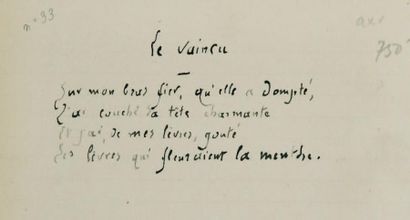 n° 33
750
Le vaincu
Sur mon bras fier, qu'elle a dompté,
J'ai couché sa tête charmante
Et j'ai, de mes lèvres, gouté
Ses lèvres qui fleuraient la menthe.